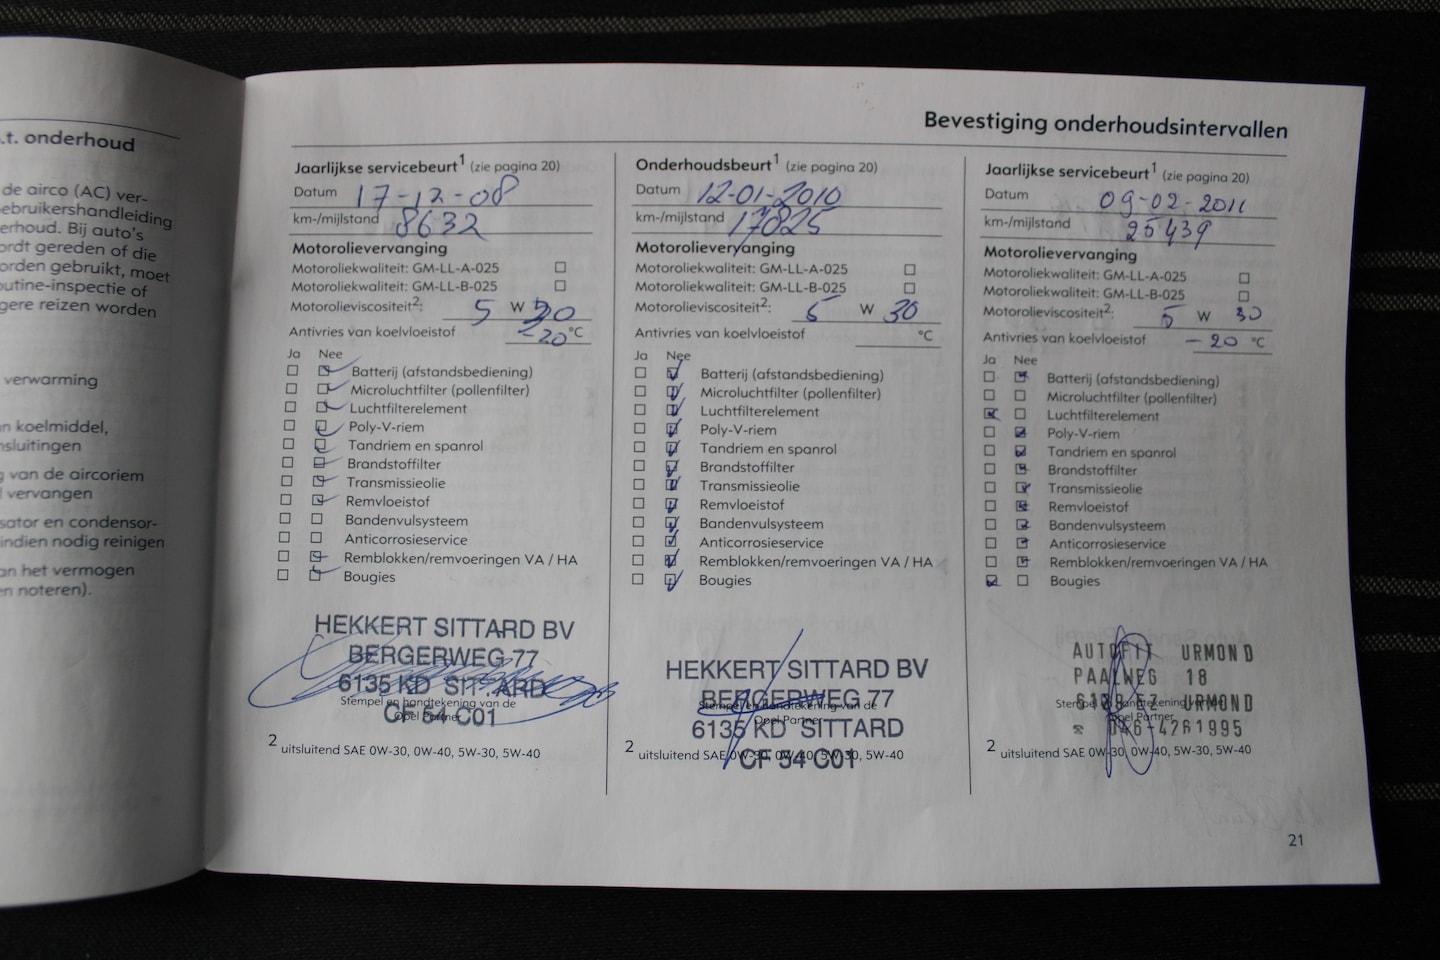 .t. onderhoud
de airco (AC) ver-
ebruikershandleiding
erhoud. Bij auto's
ordt gereden of die
orden gebruikt, moet
outine-inspectie of
gere reizen worden
verwarming
n koelmiddel,
nsluitingen
g van de aircoriem
l vervangen
sator en condensor-
indien nodig reinigen
an het vermogen
en noteren).
Bevestiging onderhoudsintervallen
Jaarlijkse servicebeurt1 (zie pagina 20)
Datum 17-12-08
km-/mijlstand 8632
Motorolievervanging
Motoroliekwaliteit: GM-LL-A-025
Motoroliekwaliteit: GM-LL-B-025
Motorolieviscositeit2: 5 W 30
Antivries van koelvloeistof -20 °C
Ja Nee
Batterij (afstandsbediening)
Microluchtfilter (pollenfilter)
Luchtfilterelement
Poly-V-riem
Tandriem en spanrol
Brandstoffilter
Transmissieolie
Remvloeistof
Bandenvulsysteem
Anticorrosieservice
Remblokken/remvoeringen VA / HA
Bougies
HEKKERT SITTARD BV
BERGERWEG 77
6135 KD SITTARD
Stempel en handtekening van de
Opel Partner
CF 54 C01
2 uitsluitend SAE 0W-30, 0W-40, 5W-30, 5W-40
Onderhoudsbeurt1 (zie pagina 20)
Datum 12-01-2010
km-/mijlstand 17825
Motorolievervanging
Motoroliekwaliteit: GM-LL-A-025
Motoroliekwaliteit: GM-LL-B-025
Motorolieviscositeit2: 5 W 30
Antivries van koelvloeistof °C
Ja Nee
Batterij (afstandsbediening)
Microluchtfilter (pollenfilter)
Luchtfilterelement
Poly-V-riem
Tandriem en spanrol
Brandstoffilter
Transmissieolie
Remvloeistof
Bandenvulsysteem
Anticorrosieservice
Remblokken/remvoeringen VA / HA
Bougies
HEKKERT SITTARD BV
BERGERWEG 77
Stempel en handtekening van de
Opel Partner
6135 KD SITTARD
2 uitsluitend SAE 0W-30, 0W-40, 5W-30, 5W-40
CF 54 C01
Jaarlijkse servicebeurt1 (zie pagina 20)
Datum 09-02-2011
km-/mijlstand 25439
Motorolievervanging
Motoroliekwaliteit: GM-LL-A-025
Motoroliekwaliteit: GM-LL-B-025
Motorolieviscositeit2: 5 W 30
Antivries van koelvloeistof -20 °C
Ja Nee
Batterij (afstandsbediening)
Microluchtfilter (pollenfilter)
Luchtfilterelement
Poly-V-riem
Tandriem en spanrol
Brandstoffilter
Transmissieolie
Remvloeistof
Bandenvulsysteem
Anticorrosieservice
Remblokken/remvoeringen VA / HA
Bougies
AUTOFIT URMOND
PAALWEG 18
EZ URMOND
Stempel en handtekening van de
Opel Partner
046-4261995
2 uitsluitend SAE 0W-30, 0W-40, 5W-30, 5W-40
21